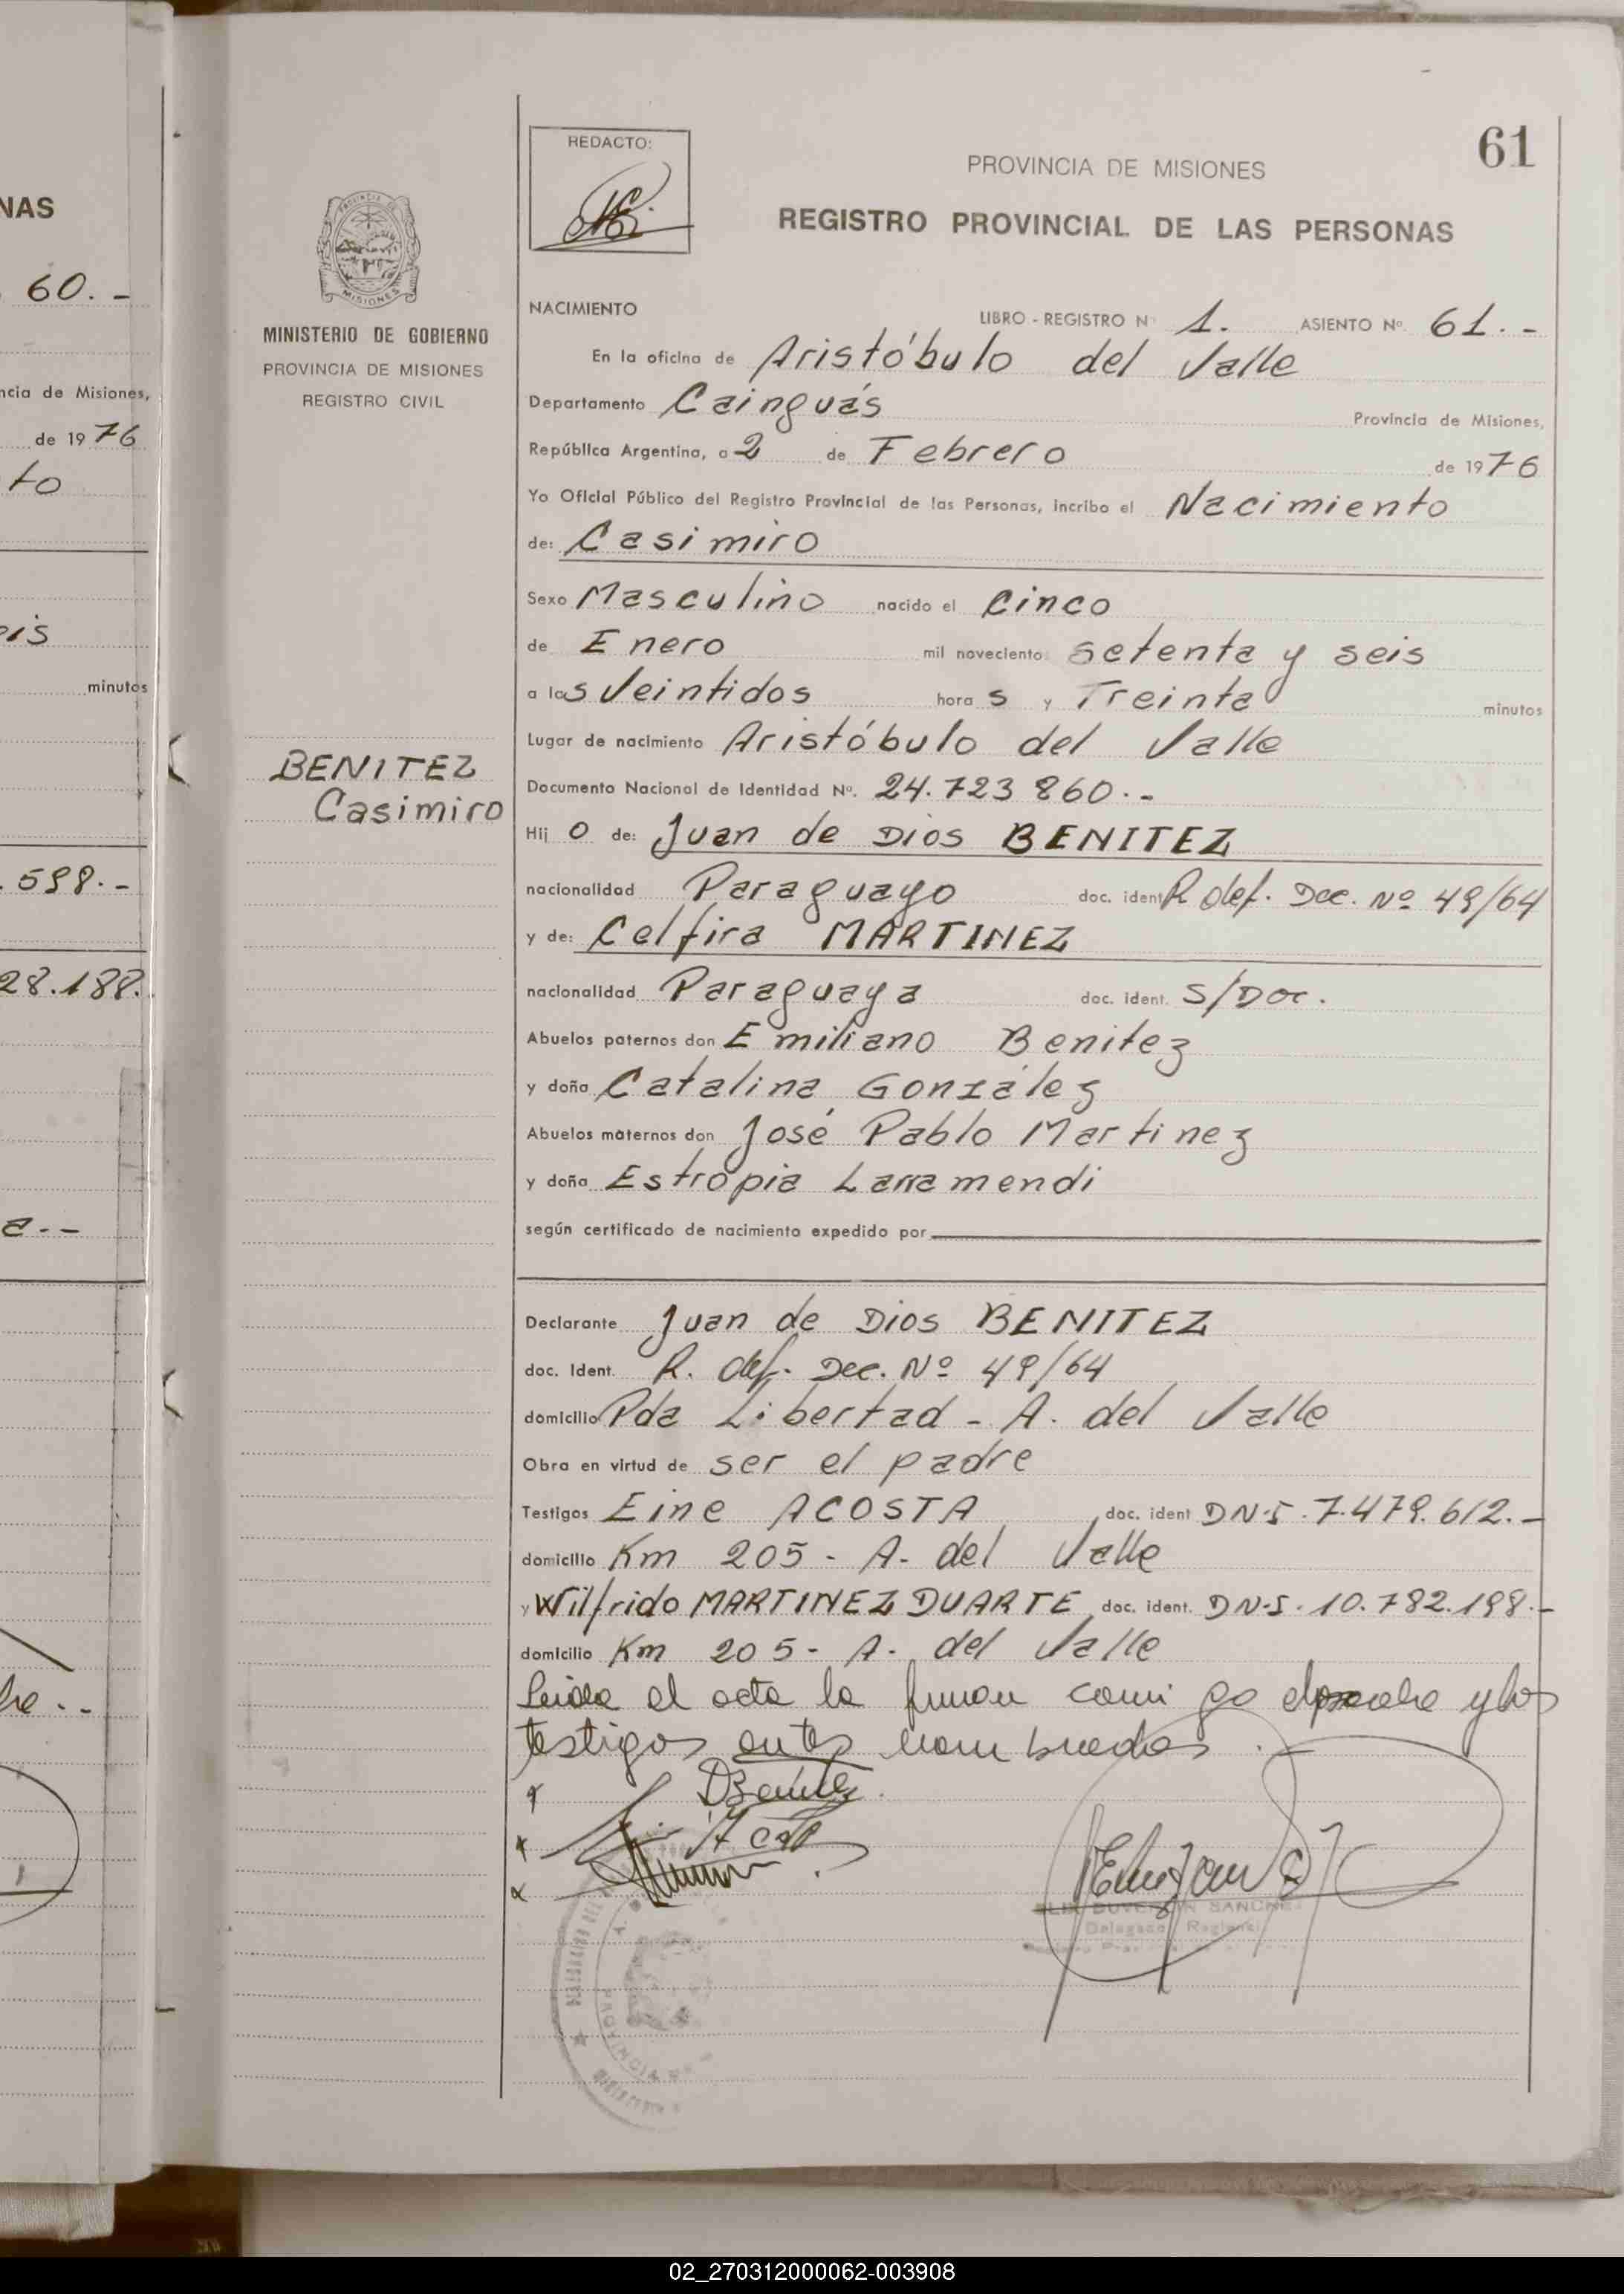 NAS
60.-
ncia de Misiones,
de 1976
to
eis
minutos
.598.-
28.188.
a.--
re..
MINISTERIO DE GOBIERNO
PROVINCIA DE MISIONES
REGISTRO CIVIL
BENITEZ
Casimiro
REDACTO:
61
PROVINCIA DE MISIONES
REGISTRO PROVINCIAL DE LAS PERSONAS
NACIMIENTO LIBRO - REGISTRO Nº 1. ASIENTO Nº. 61.-
En la oficina de Aristóbulo del Valle
Departamento Cainguás Provincia de Misiones,
República Argentina, a 2 de Febrero de 1976
Yo Oficial Público del Registro Provincial de las Personas, incribo el Nacimiento
de: Casimiro
Sexo Masculino nacido el Cinco
de Enero mil noveciento setenta y seis
a las Veintidos horas y Treinta minutos
Lugar de nacimiento Aristóbulo del Valle
Documento Nacional de Identidad Nº. 24.723 860.-
Hijo de: Juan de Dios BENITEZ
nacionalidad Paraguayo doc. ident R def. Dec. Nº 49/64
y de: Celfira MARTINEZ
nacionalidad Paraguaya doc. ident. S/Doc.
Abuelos paternos don Emiliano Benitez
y doña Catalina González
Abuelos maternos don José Pablo Martinez
y doña Estropia Larramendi
según certificado de nacimiento expedido por
Declarante Juan de Dios BENITEZ
doc. Ident. R. def. Dec. Nº 49/64
domicilio Pda Libertad - A. del Valle
Obra en virtud de ser el padre
Testigos Eine ACOSTA doc. ident DN.I. 7.479.612.-
domicilio Km 205 - A. del Valle
y Wilfrido MARTINEZ DUARTE doc. ident. DN.I. 10.782.198.-
domicilio Km 205 - A. del Valle
Leida el acta la firman conmigo el padre y los
testigos antes nombrados.
DBenitez
SANCHEZ
Delegado Regional
PROVINCIA
02_270312000062-003908